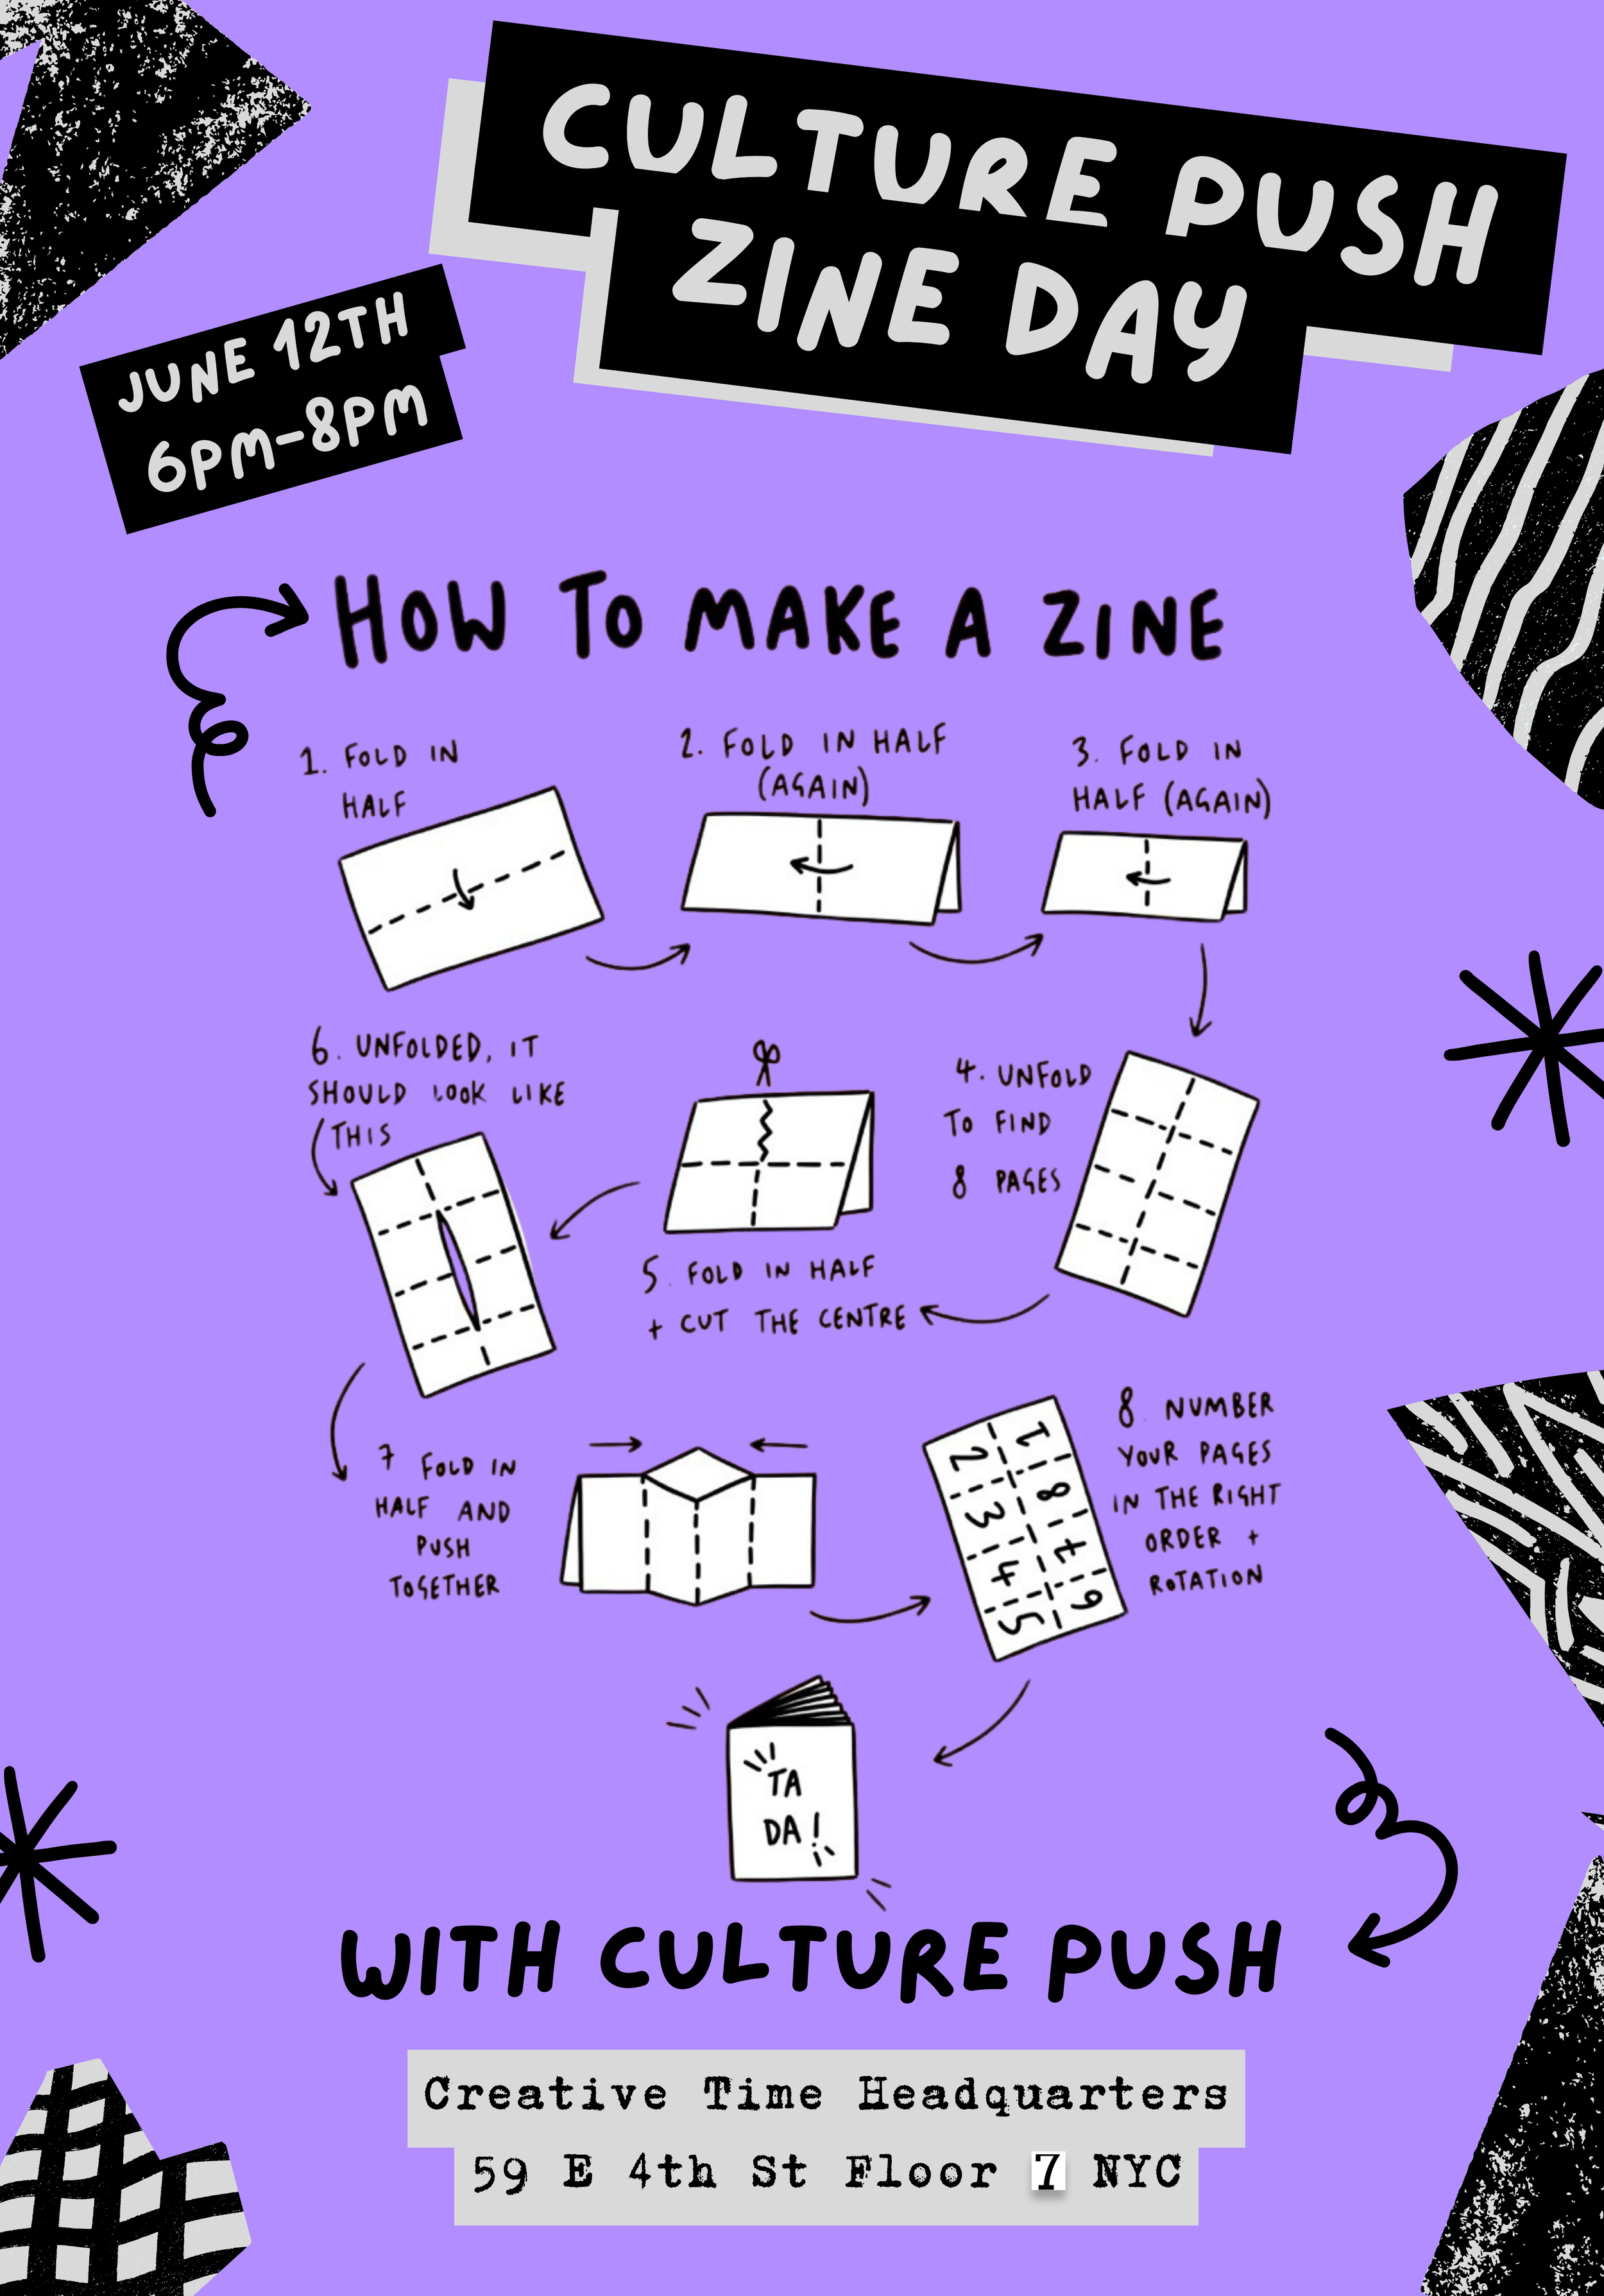 CULTURE PUSH
ZINE DAY
JUNE 12TH
6PM-8PM
HOW TO MAKE A ZINE
1. FOLD IN
HALF
2. FOLD IN HALF
(AGAIN)
3. FOLD IN
HALF (AGAIN)
4. UNFOLD
TO FIND
8 PAGES
5. FOLD IN HALF
+ CUT THE CENTRE
6. UNFOLDED, IT
SHOULD LOOK LIKE
THIS
7 FOLD IN
HALF AND
PUSH
TOGETHER
8. NUMBER
YOUR PAGES
IN THE RIGHT
ORDER +
ROTATION
2 1
3 8
4 7
5 6
TA
DA!
WITH CULTURE PUSH
Creative Time Headquarters
59 E 4th St Floor 7 NYC